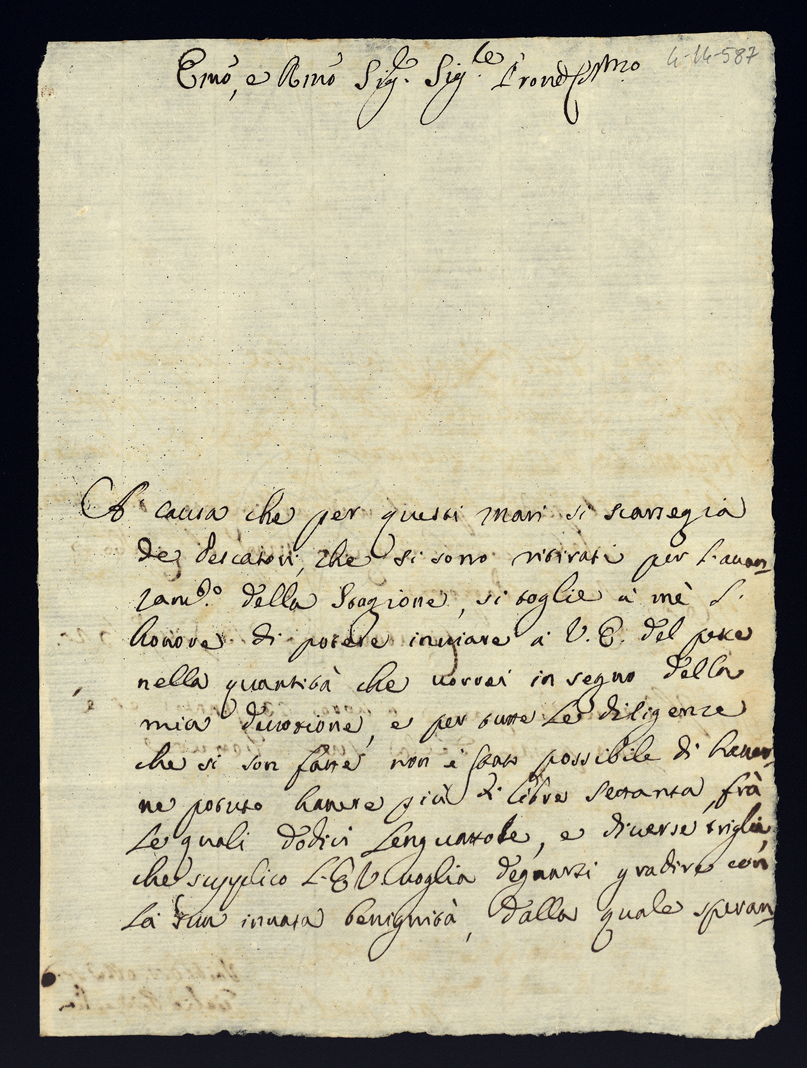 Emo, e Rmo Sigr. Sigle Prone Ssmo
4-14-587
A causa che per questi mari si scarsegia
de Pescatori, che si sono ritirati per l'auan
zamto della Stagione, si toglie à mè l'
honore di potere inuiare à V. E. del pesce
nella quantità che uorrei in segno della
mia diuotione, e per tutte le diligenze
che si son fatte non è stato possibile di hauer
ne potuto hauere più di libre settanta, frà
le quali dodici lenguattole, e diuerse triglie
che supplico l'E V uoglia degnarsi gradire con
la sua innata benignità, dalla quale speran